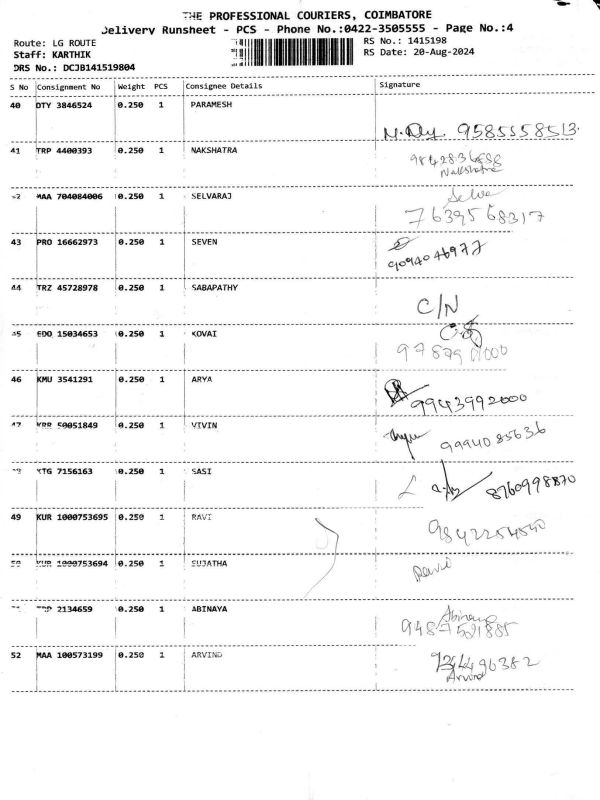 THE PROFESSIONAL COURIERS, COIMBATORE
Delivery Runsheet - PCS - Phone No.:0422-3505555 - Page No.:4
Route: LG ROUTE
RS No.: 1415198
Staff: KARTHIK
RS Date: 20-Aug-2024
DRS No.: DCJB141519804
S No Consignment No Weight PCS Consignee Details Signature
40 DTY 3846524 0.250 1 PARAMESH
9585558513
41 TRP 4400393 0.250 1 NAKSHATRA
Nakshatra
42 MAA 704084006 0.250 1 SELVARAJ Selva
7639568317
43 PRO 16662973 0.250 1 SEVEN
9094046977
44 TRZ 45728978 0.250 1 SABAPATHY
C/N
45 EDO 15034653 0.250 1 KOVAI
46 KMU 3541291 0.250 1 ARYA
9943992000
47 KRR 50051849 0.250 1 VIVIN
9994085636
48 KTG 7156163 0.250 1 SASI
8760998870
49 KUR 1000753695 0.250 1 RAVI
9842254540
50 KUR 1000753694 0.250 1 SUJATHA
Ravi
51 TRP 2134659 0.250 1 ABINAYA Abinaya
9487591885
52 MAA 100573199 0.250 1 ARVIND
Arvind